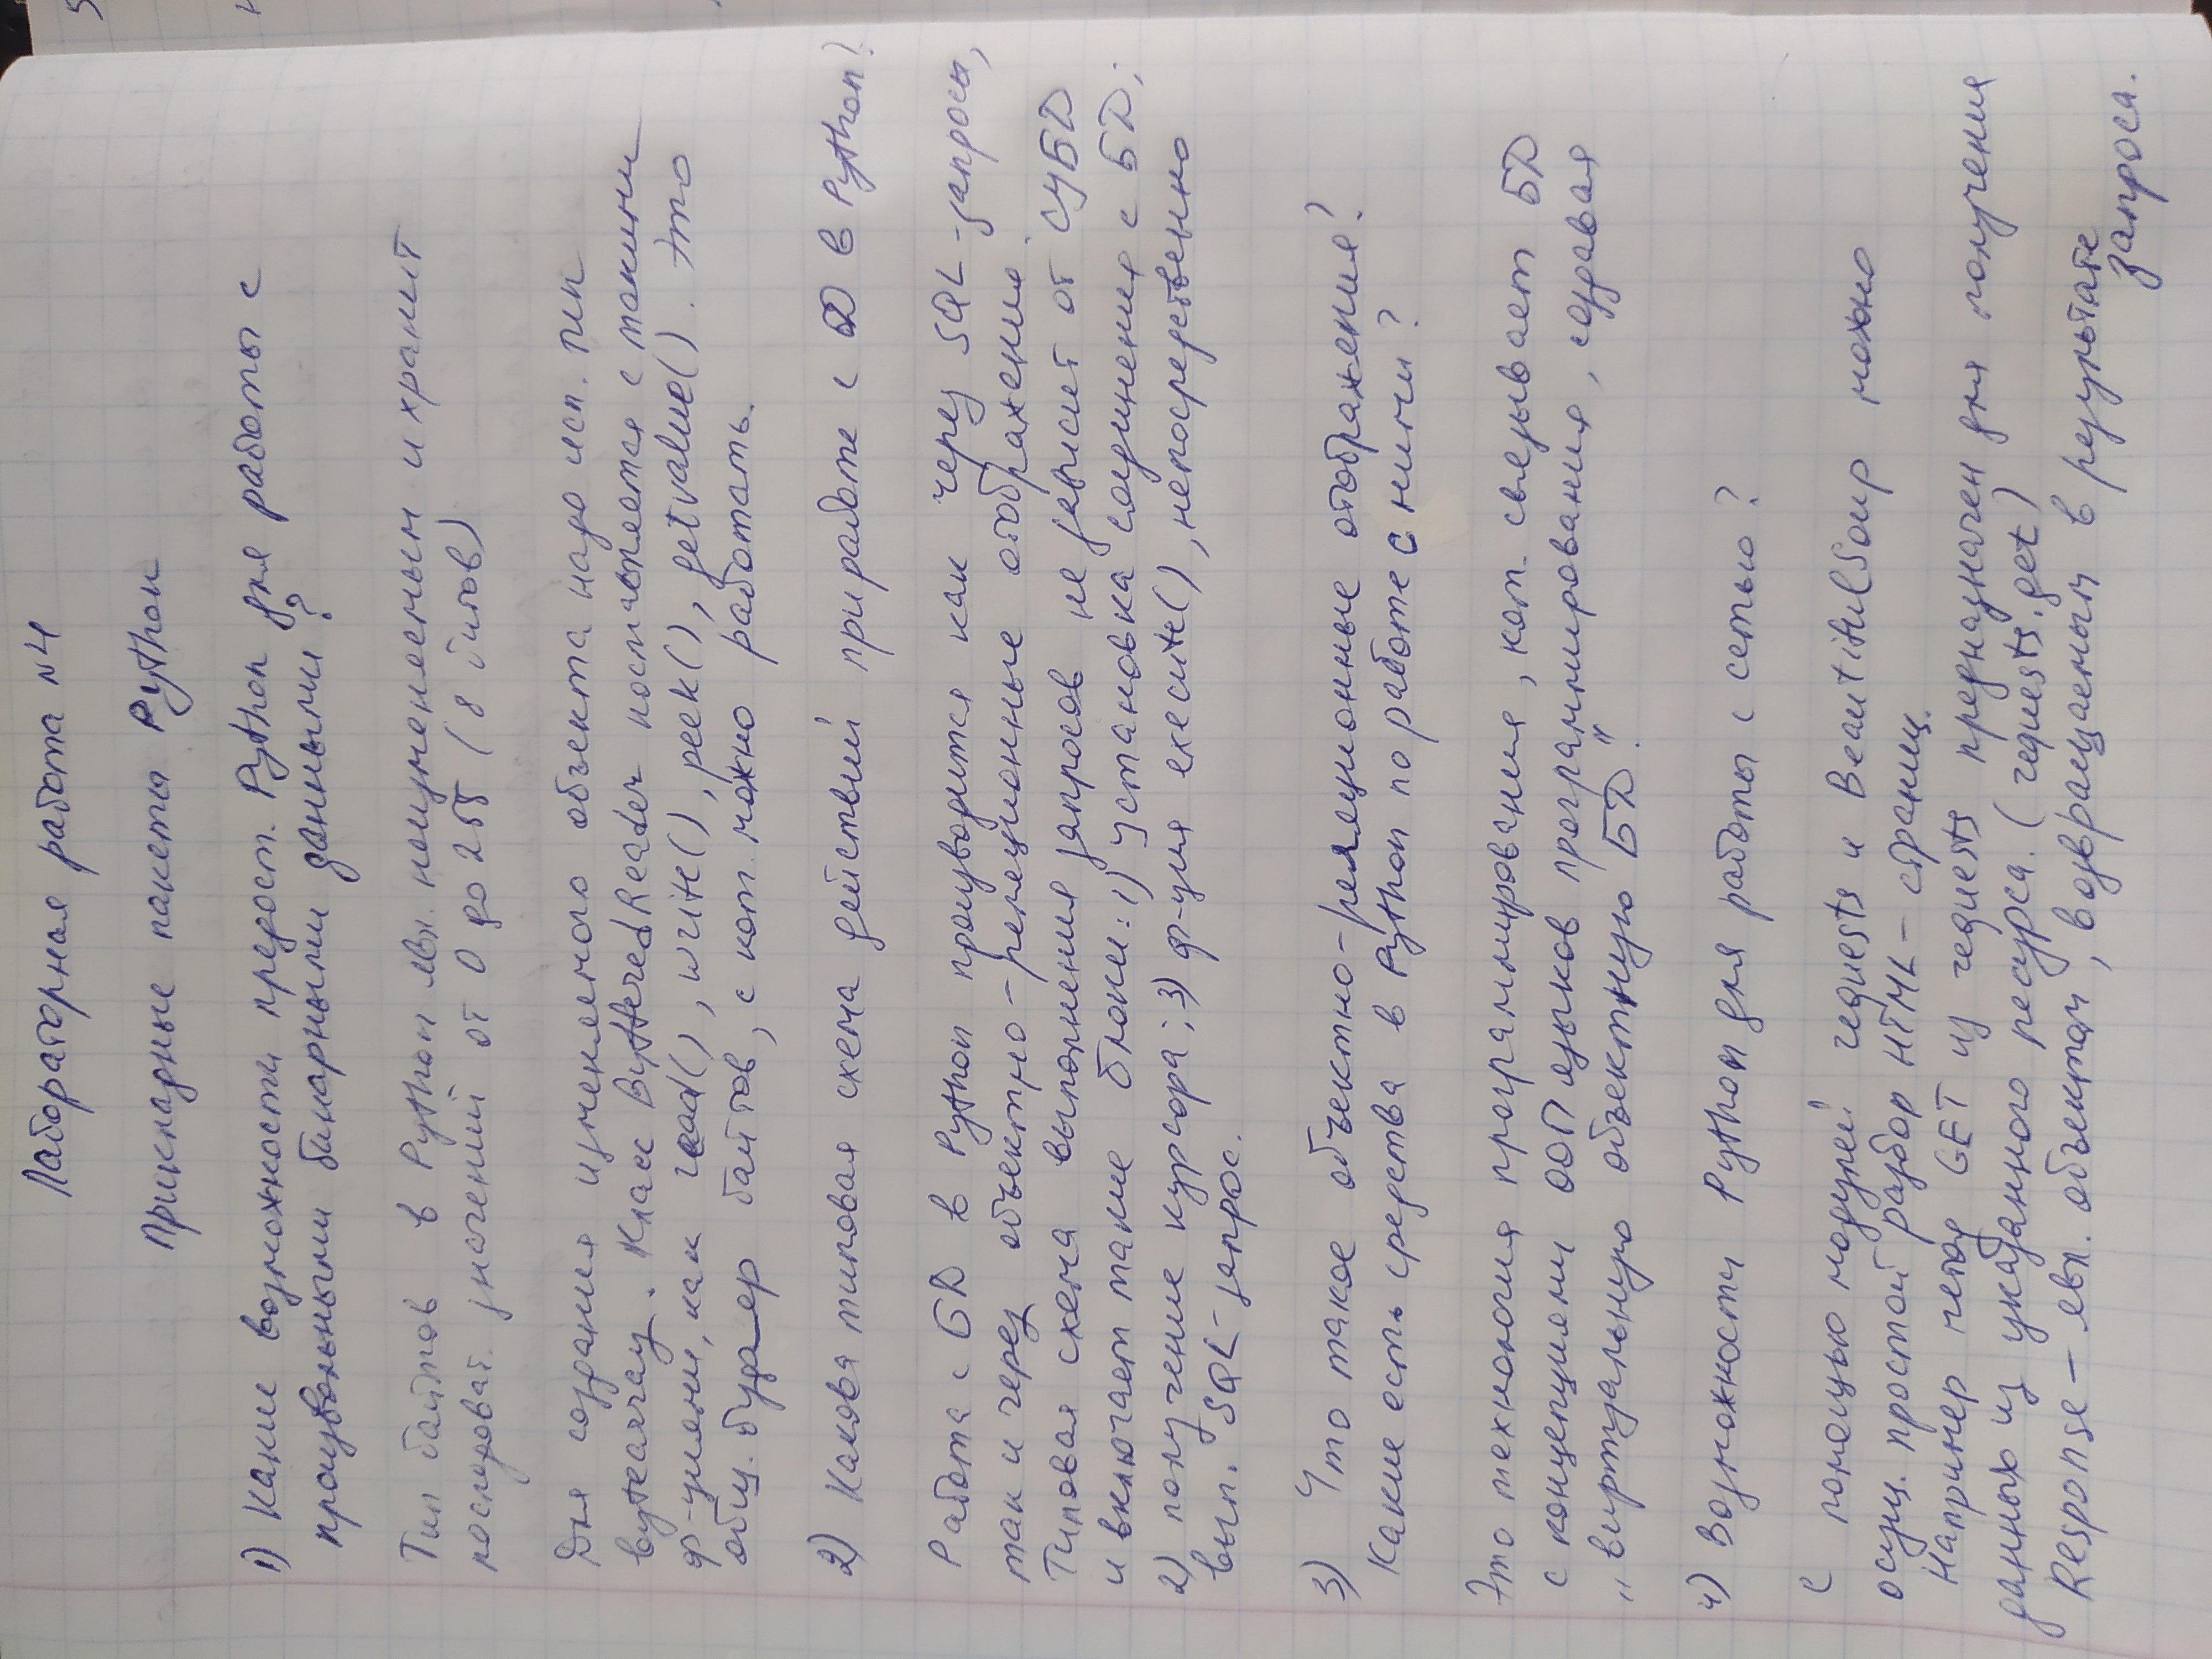 Лабораторная работа №4
Прикладные пакеты Python
1) Какие возможности предост. Python для работы с
произвольными бинарными данными?
Тип байтов в Python явл. неизменяемым и хранит
последоват. значений от 0 до 255 (8 битов)
Для создания изменяемого объекта надо исп. тип
bytearray. Класс ByfferedReader поставляется с такими
ф-циями, как read(), write(), peek(), getvalue(). Это
общ. буфер байтов, с кот. можно работать.
2) Какова типовая схема действий при работе с БД в Python?
Работа с БД в Python производится как через SQL-запросы,
так и через объектно-реляционные отображения.
Типовая схема выполнения запросов не зависит от СУБД
и включает такие блоки: 1) установка соединения с БД;
2) получение курсора; 3) ф-ция execute(), непосредственно
вып. SQL-запрос.
3) Что такое объектно-реляционные отображения?
Какие есть средства в Python по работе с ними?
Это технология программирования, кот. связывает БД
с концепциями ООП языков программирования, создавая
„виртуальную объектную БД".
4) Возможности Python для работы с сетью?
С помощью модулей requests и BeautifulSoup можно
осущ. простой разбор HTML-страниц.
Например метод GET из requests предназначен для получения
данных из указанного ресурса. (requests.get)
Response – явл. объектом, возвращаемым в результате
запроса.
5